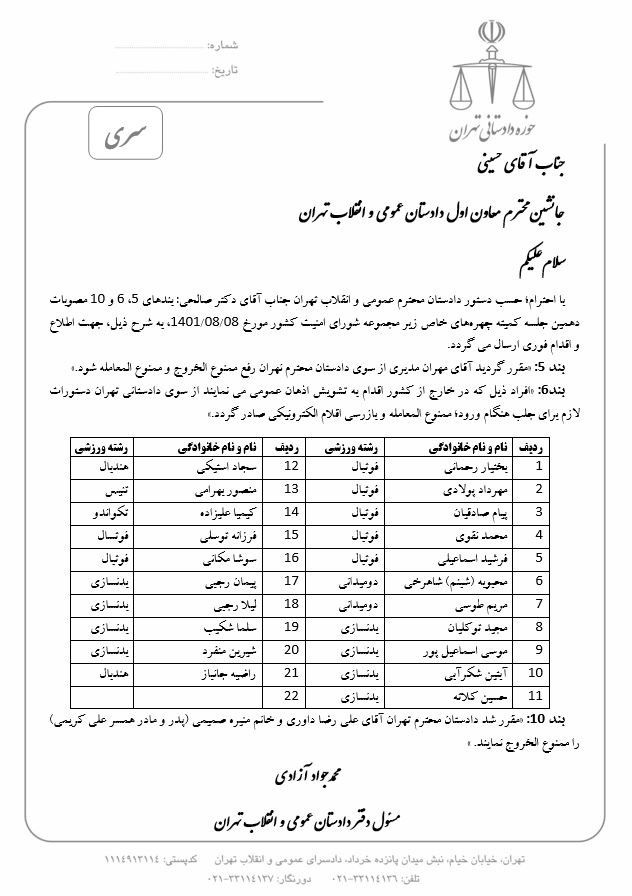 شماره: ........................
تاریخ: ........................
حوزه دادستانی تهران
سری
جناب آقای حسینی
جانشین محترم معاون اول دادستان عمومی و انقلاب تهران
سلام علیکم
با احترام؛ حسب دستور دادستان محترم عمومی و انقلاب تهران جناب آقای دکتر صالحی: بندهای 5، 6 و 10 مصوبات
دهمین جلسه کمیته چهره‌های خاص زیر مجموعه شورای امنیت کشور مورخ 1401/08/08، به شرح ذیل، جهت اطلاع
و اقدام فوری ارسال می گردد.
بند 5: «مقرر گردید آقای مهران مدیری از سوی دادستان محترم تهران رفع ممنوع الخروج و ممنوع المعامله شود.»
بند6: «افراد ذیل که در خارج از کشور اقدام به تشویش اذهان عمومی می نمایند از سوی دادستانی تهران دستورات
لازم برای جلب هنگام ورود؛ ممنوع المعامله و بازرسی اقلام الکترونیکی صادر گردد.»
ردیف نام و نام خانوادگی رشته ورزشی ردیف نام و نام خانوادگی رشته ورزشی
1 بختیار رحمانی فوتبال 12 سجاد استیکی هندبال
2 مهرداد پولادی فوتبال 13 منصور بهرامی تنیس
3 پیام صادقیان فوتبال 14 کیمیا علیزاده تکواندو
4 محمد نقوی فوتبال 15 فرزانه توسلی فوتسال
5 فرشید اسماعیلی فوتبال 16 سوشا مکانی فوتبال
6 محبوبه (شبنم) شاهرخی دومیدانی 17 پیمان رجبی بدنسازی
7 مریم طوسی دومیدانی 18 لیلا رجبی بدنسازی
8 مجید توکلیان بدنسازی 19 سلما شکیب بدنسازی
9 موسی اسماعیل پور بدنسازی 20 شیرین منفرد بدنسازی
10 آیتین شکرآبی بدنسازی 21 راضیه جانباز هندبال
11 حسین کلاته بدنسازی 22
بند 10: «مقرر شد دادستان محترم تهران آقای علی رضا داوری و خانم منیره صمیمی (پدر و مادر همسر علی کریمی)
را ممنوع الخروج نمایند. »
محمدجواد آزادی
مسئول دفتر دادستان عمومی و انقلاب تهران
تهران، خیابان خیام، نبش میدان پانزده خرداد، دادسرای عمومی و انقلاب تهران کدپستی: ۱۱۱۴۹۱۳۱۱۴
تلفن: ۳۳۱۱۴۱۳۶-۰۲۱ دورنگار: ۳۳۱۱۴۱۳۷-۰۲۱